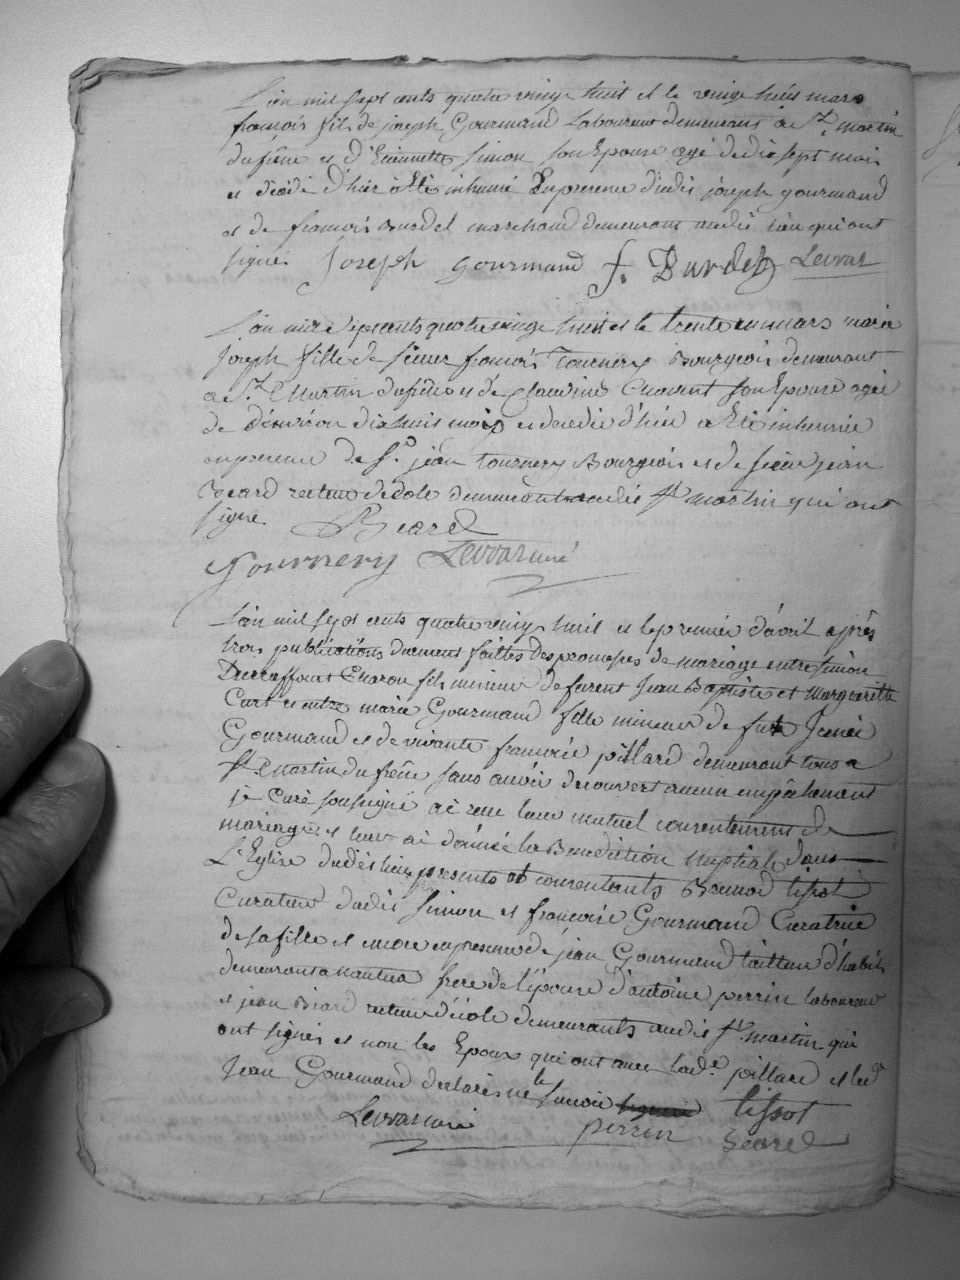 L'an mil sept cents quatre vingt huit et le vingt huit mars
françois fils de joseph Gourmand Laboureur demeurant a St. martin
du frêne et d'Etiennette Simon son Epouse agé de dix sept mois
et décédé d'hier à Eté inhumé En presence dudit joseph gourmand
et de françois Burdel marchand demeurant audit lieu qui ont
signé. Joseph Gourmand f. Burdet Levrat
L'an mil sept cents quatre vingt huit et le trente un mars marie
joseph fille de sieur françois Tournery Bourgeois demeurant
a St. Martin du frêne et de Claudine Chavent son Epouse agée
de d'environ dix huit mois et decedée d'hier a Eté inhumée
en presence de Sr. jean tournery Bourgeois et de sieur jean
Beard recteur d'école demeurant audit St martin qui ont
signé. Beard
Tournery Levrat curé
L'an mil sept cents quatre vingt huit et le premier d'avril après
trois publications duement faittes des promesses de mariage entre Simon
Ducraffour Charon fils mineur de furent Jean Baptiste et Margueritte
Curt et entre marie Gourmand fille mineure de fut
Gourmand et de vivante françoise pillard demeurant tous a
St Martin du frêne sans avoir decouvert aucun empêchement
je Curé soussigné ai recu leur mutuel consentement de
mariage et leur ai donné la Benediction nuptiale dans
L'Eglise dudit lieu presents et consentants Bennod tissot
Curateur dudit Simon et françoise Gourmand Curatrice
de sa fille et encore en presence de jean Gourmand tailleur d'habits
demeurant a nantua frere de l'épouse d'antoine perrin laboureur
et jean Beard recteur d'école demeurants audit St martin qui
ont signés et non les Epoux qui ont avec lade. pillard et led.
Jean Gourmand declarés ne le sçavoir tissot
Levrat curé perrin Beard